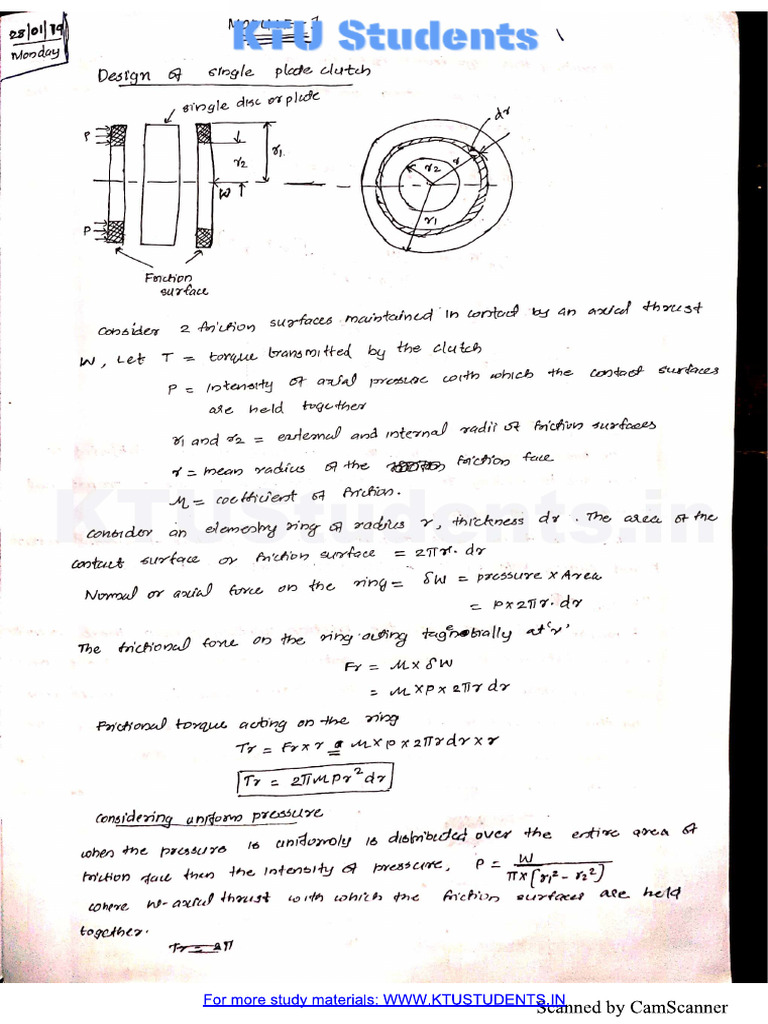 28/01/19
Monday
MODULE - 1
KTU Students
1
Design of single plate clutch
single disc or plate
P
P
r2
r1
W
dr
r2
r
r1
Friction
surface
consider 2 friction surfaces maintained in contact by an axial thrust
W, Let T = torque transmitted by the clutch
P = intensity of axial pressure with which the contact surfaces
are held together
r1 and r2 = external and internal radii of friction surfaces
r = mean radius of the friction face
μ = coefficient of friction.
KTUStudents.in
consider an elementry ring of radius r, thickness dr. The area of the
contact surface or friction surface = 2πr.dr
Normal or axial force on the ring = δW = pressure × Area
= P×2πr.dr
The frictional force on the ring acting tagnetially at 'r'
Fr = μ×δW
= μ×P×2πr dr
Frictional torque acting on the ring
Tr = Fr×r = μ×P×2πrdr×r
Tr = 2πμPr²dr
considering uniform pressure
when the pressure is uniformly is distributed over the entire area of
friction face then the intensity of pressure, P = W / π×(r1² - r2²)
where W-axial thrust with which the friction surfaces are held
together.
Tr = 2π
For more study materials: WWW.KTUSTUDENTS.IN
Scanned by CamScanner